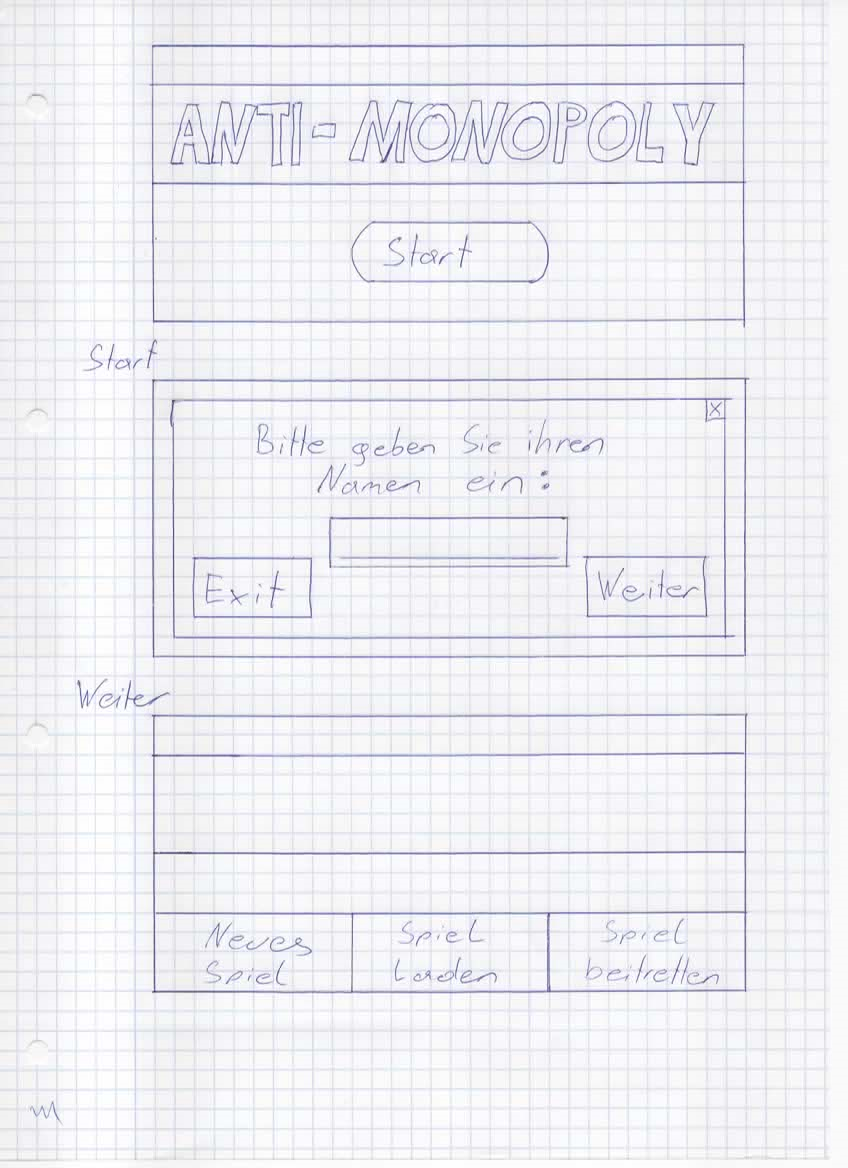 ANTI-MONOPOLY
Start
Start
X
Bitte geben Sie ihren
Namen ein:
Exit
Weiter
Weiter
Neues
Spiel
Spiel
laden
Spiel
beitretten